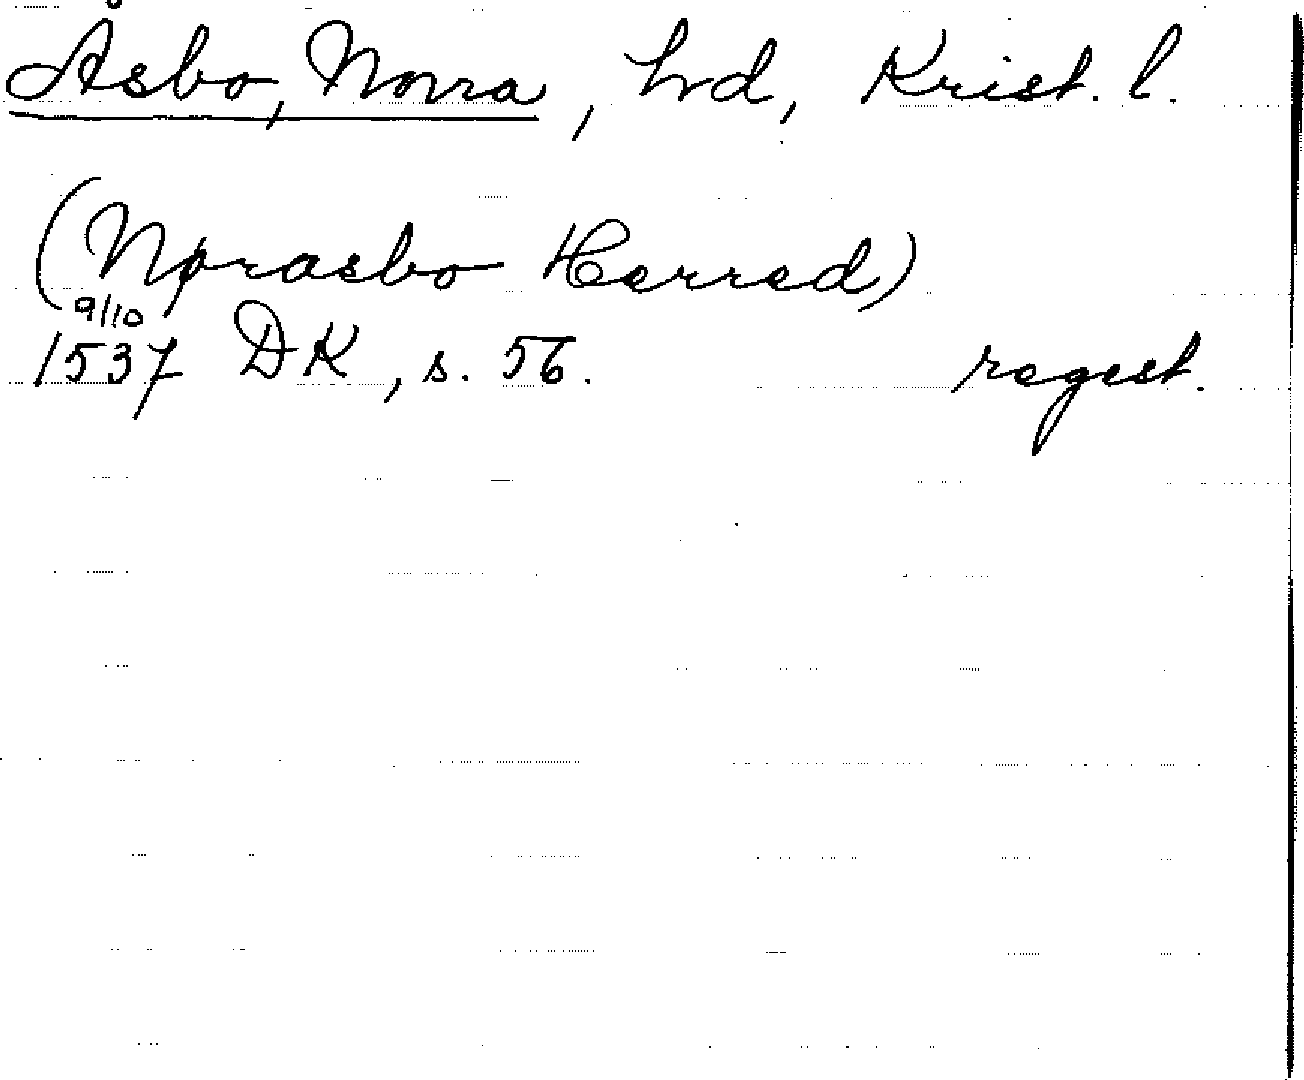 Åsbo, Norra, hd, Krist. l.
(Nørasbo Herred)
9/10
1537 DK, s. 56. regest.